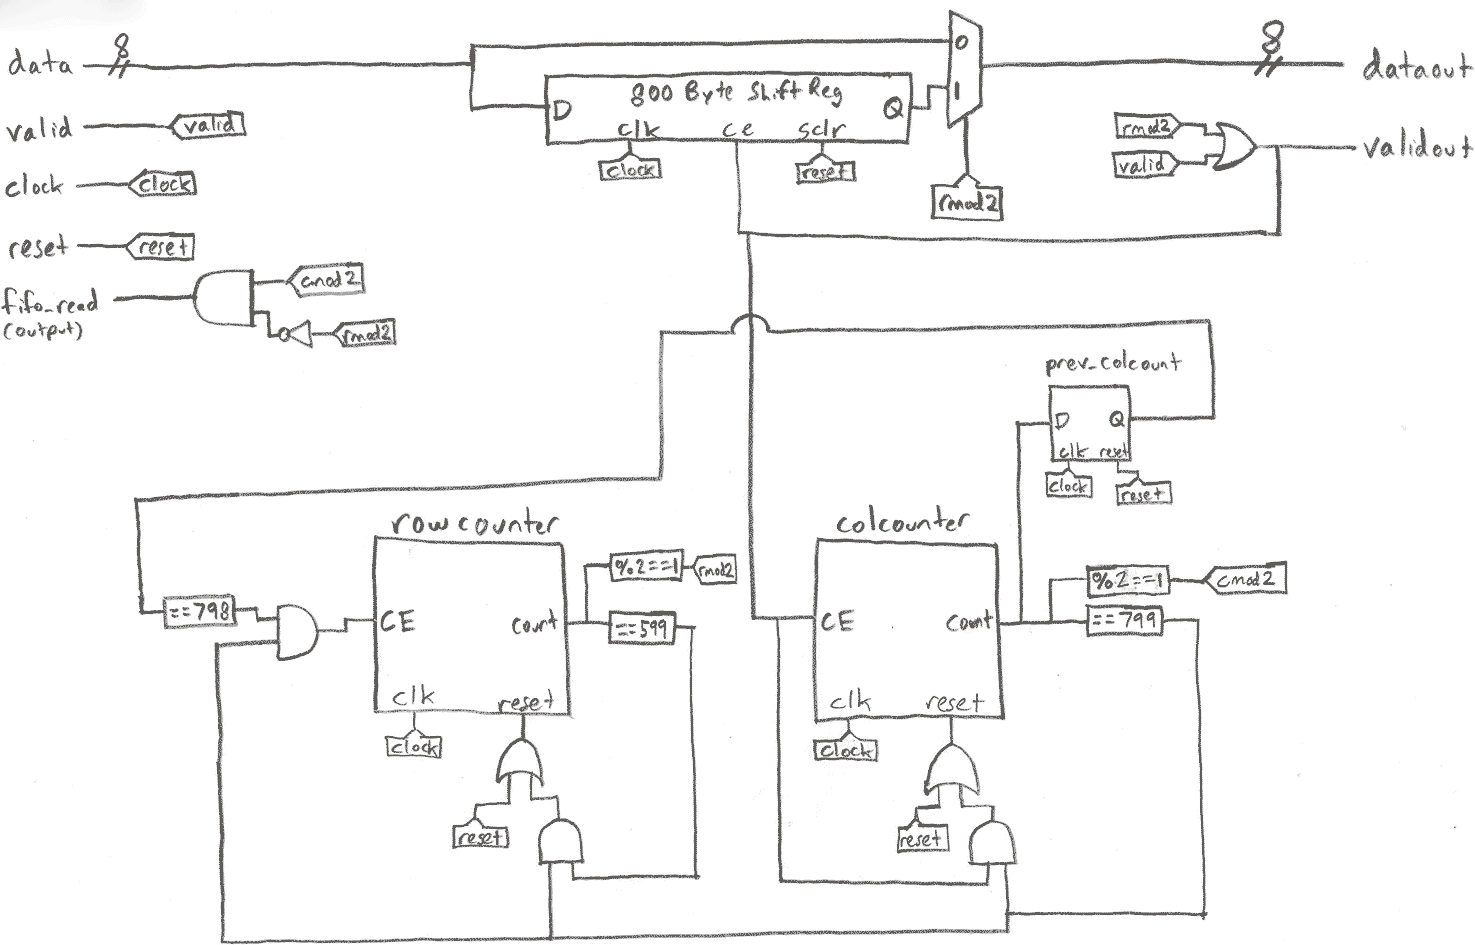 data 8
valid valid
clock clock
reset reset
fifo_read
(output)
cmod2
rmod2
800 Byte Shift Reg
D Q
clk ce sclr
clock reset
0
1
rmod2
8 dataout
rmod2
valid
validout
prev_colcount
D Q
clk reset
clock reset
rowcounter
==798
CE count
clk reset
clock
reset
%2==1 rmod2
==599
colcounter
CE count
clk reset
clock
reset
%2==1 cmod2
==799